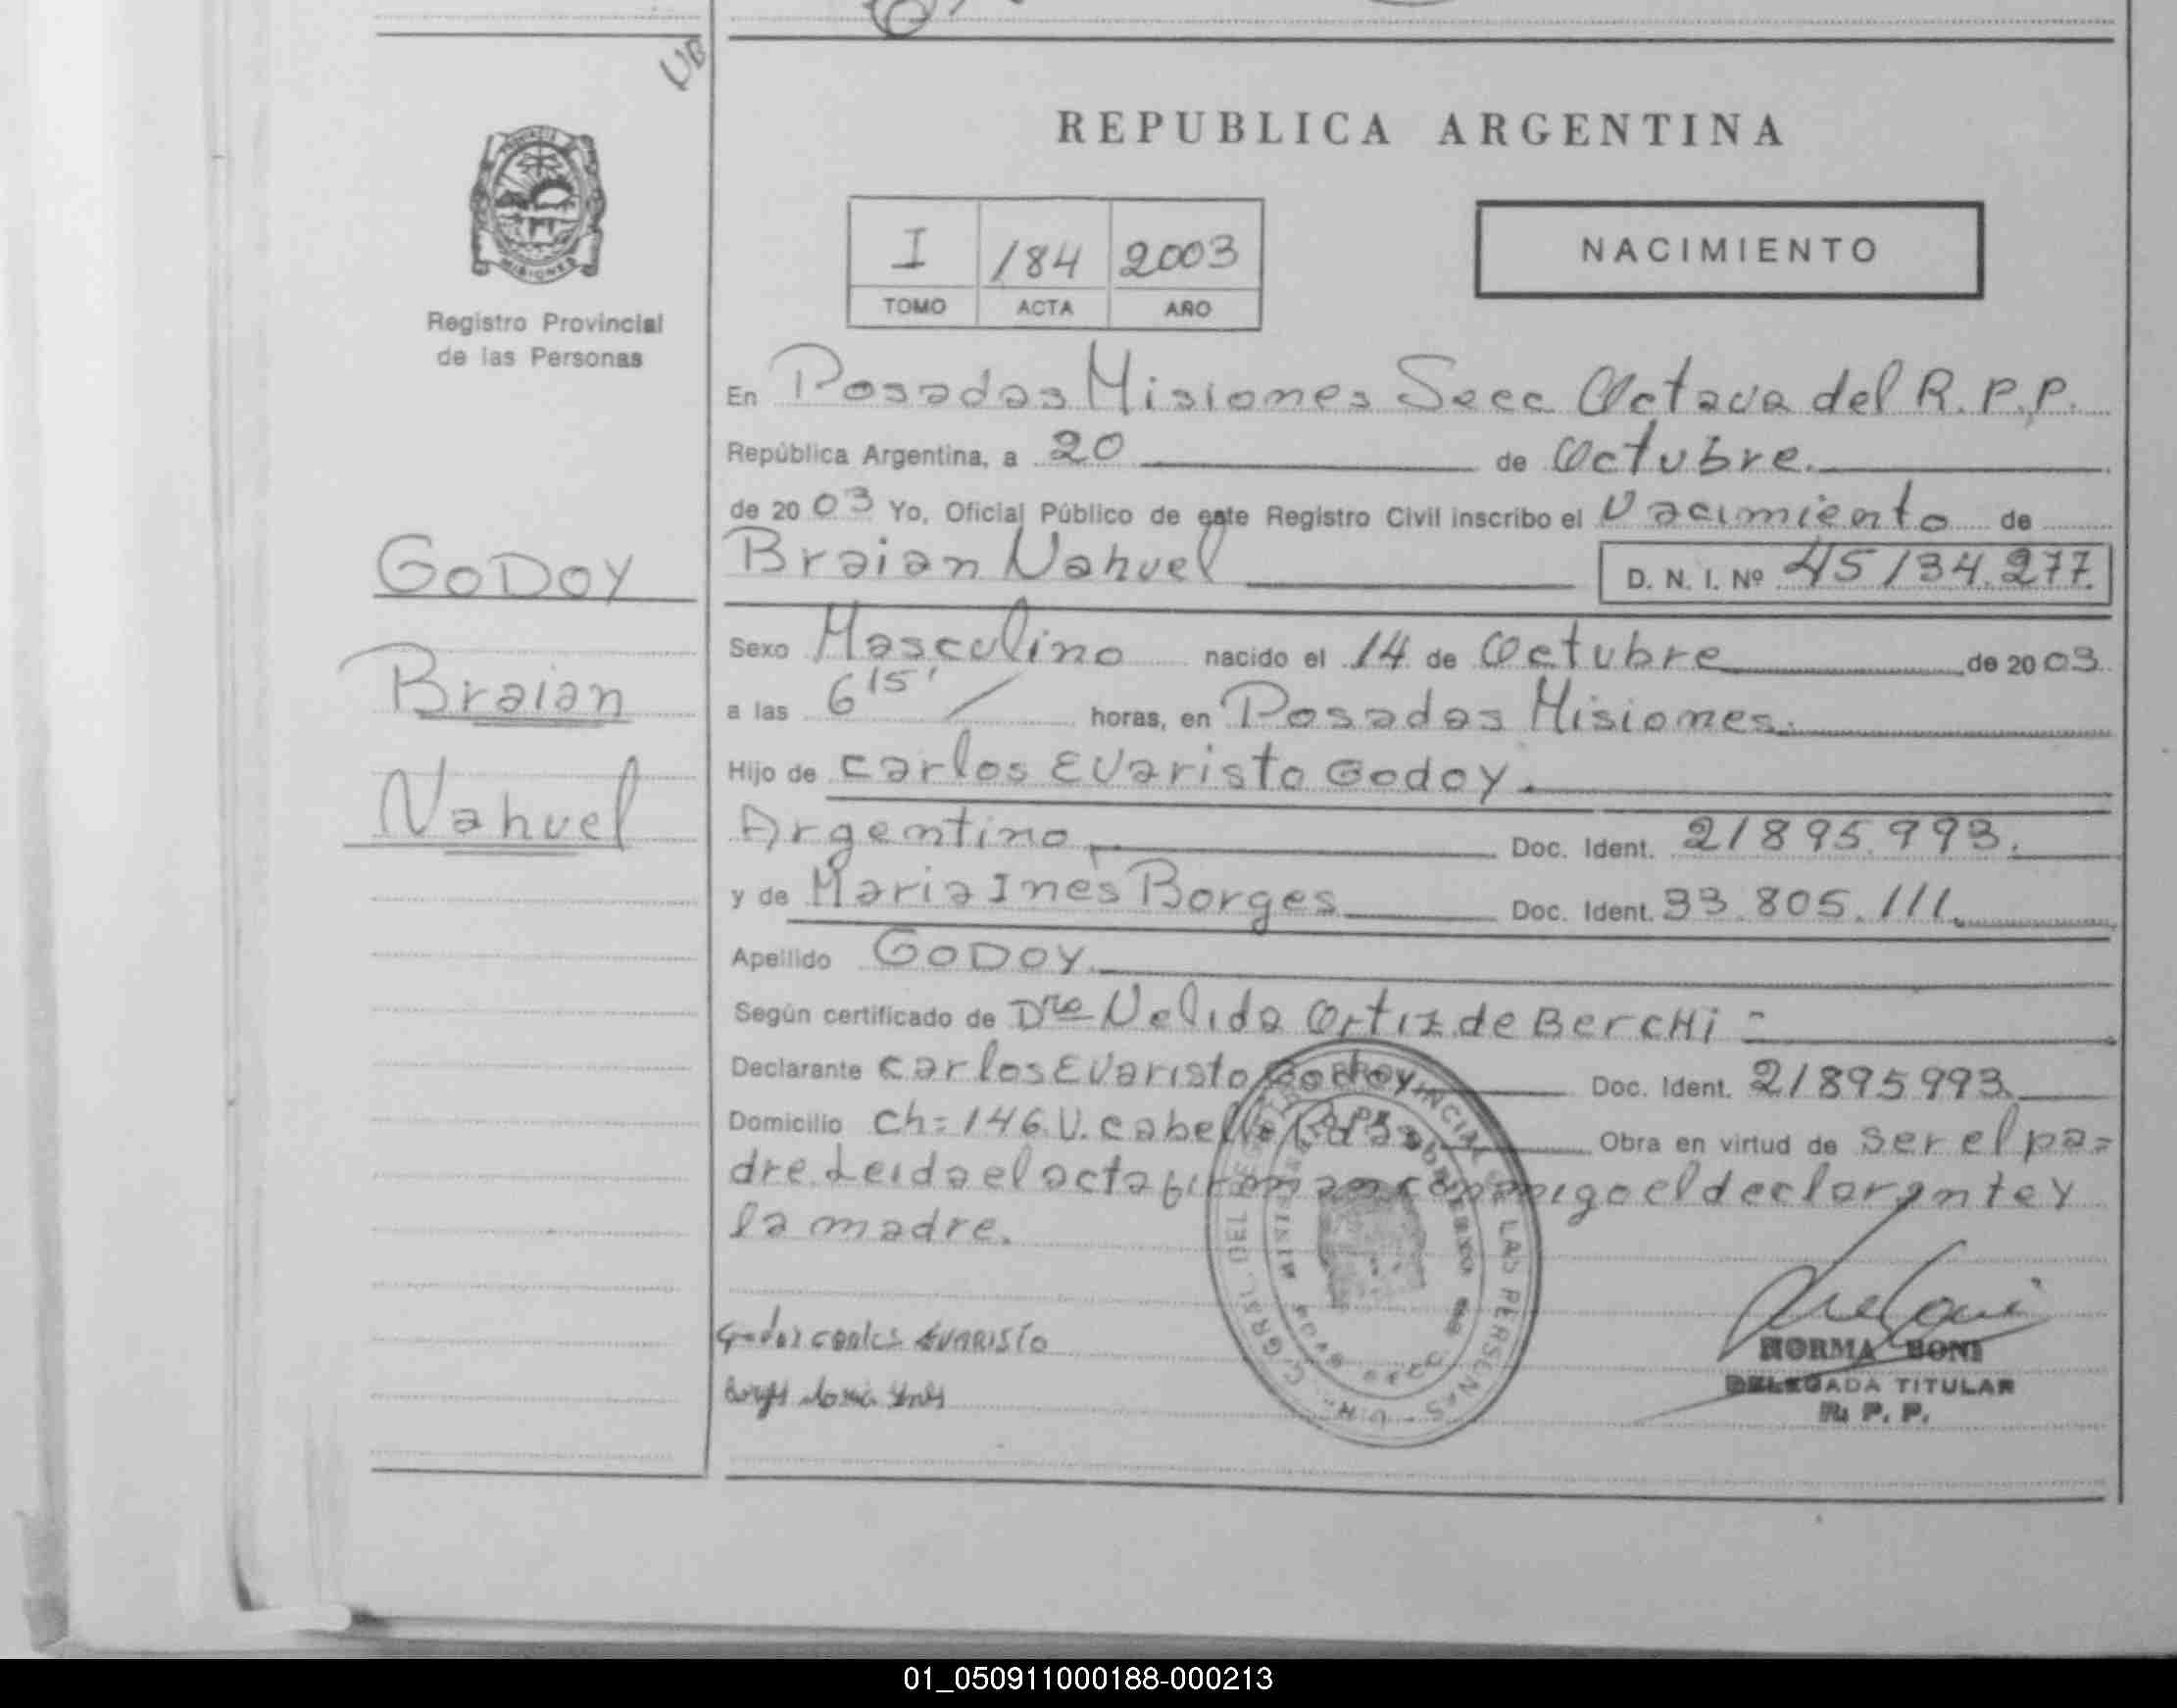 UB
REPUBLICA ARGENTINA
PROVINCIA
MISIONES
Registro Provincial
de las Personas
I 184 2003
TOMO ACTA AÑO
NACIMIENTO
En Posadas Misiones Secc Octava del R.P.P.
República Argentina, a 20 de Octubre.
de 2003 Yo, Oficial Público de este Registro Civil inscribo el Nacimiento de
GODOY
Braian Nahuel D. N. I. Nº 45134.277
Sexo Masculino nacido el 14 de Octubre de 2003
Braian
a las 6 15' horas, en Posadas Misiones.
Hijo de Carlos Evaristo Godoy.
Nahuel
Argentino, Doc. Ident. 21895.993.
y de Maria Inés Borges Doc. Ident. 33.805.111.
Apellido GODOY.
Según certificado de Dra Nelida Ortiz de BercHi =
Declarante Carlos Evaristo Godoy Doc. Ident. 21895993.
Domicilio Ch: 146. V. Cabello Pdas. Obra en virtud de ser el pa=
dre. Leida el acta firman conmigo el declarante y
la madre.
Godoy Carlos EVARISTO
Borges Maria Ines
NORMA BONI
DELEGADA TITULAR
R. P. P.
01_050911000188-000213